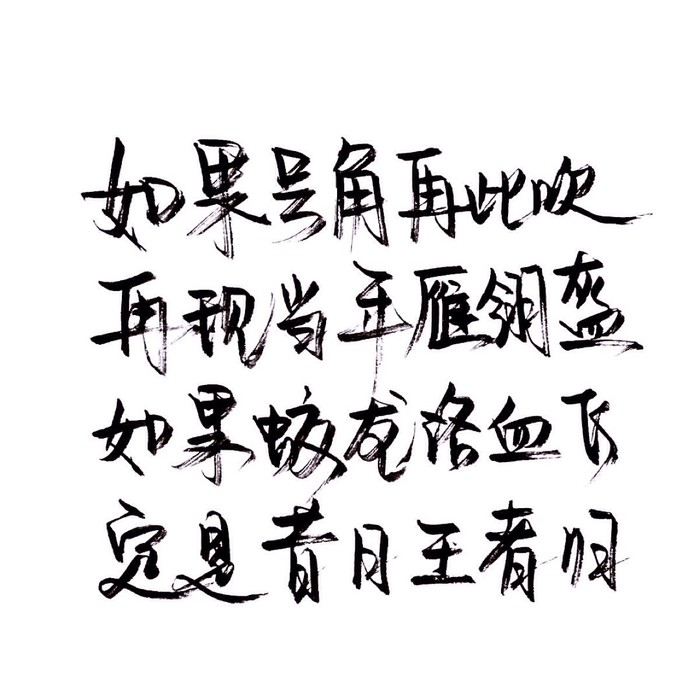 如果号角再此吹
再现当年雁翎盔
如果蛟龙洛血飞
定是昔日王者归